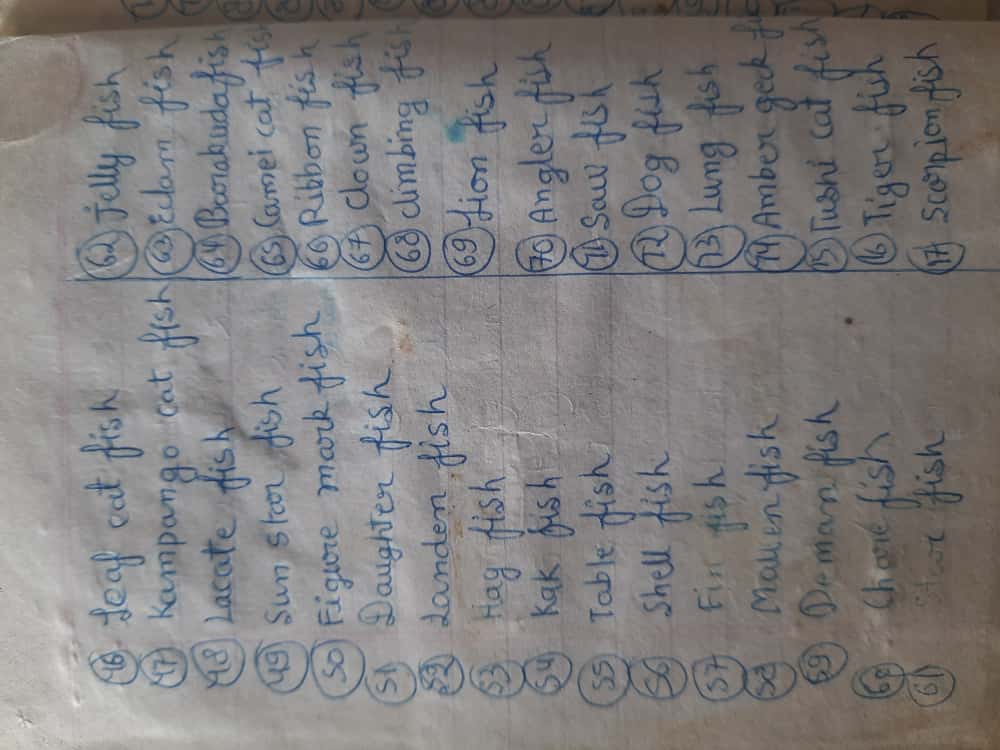 46 Leaf cat fish
47 Kampango cat fish
48 Lacate fish
49 Sun star fish
50 Figure mark fish
51 Daughter fish
52 Landen fish
53 Hag fish
54 Kak fish
55 Table fish
56 Shell fish
57 Fin fish
58 Mallen fish
59 Deman fish
60 fish
61 Star fish
62 Jelly fish
63 Clam fish
64 Barakuda fish
65 Camei cat fish
66 Ribbon fish
67 Clown fish
68 Climbing fish
69 Lion fish
70 Angler fish
71 Saw fish
72 Dog fish
73 Lung fish
74 Amber geck
75 Tushi cat fish
76 Tiger fish
77 Scorpion fish